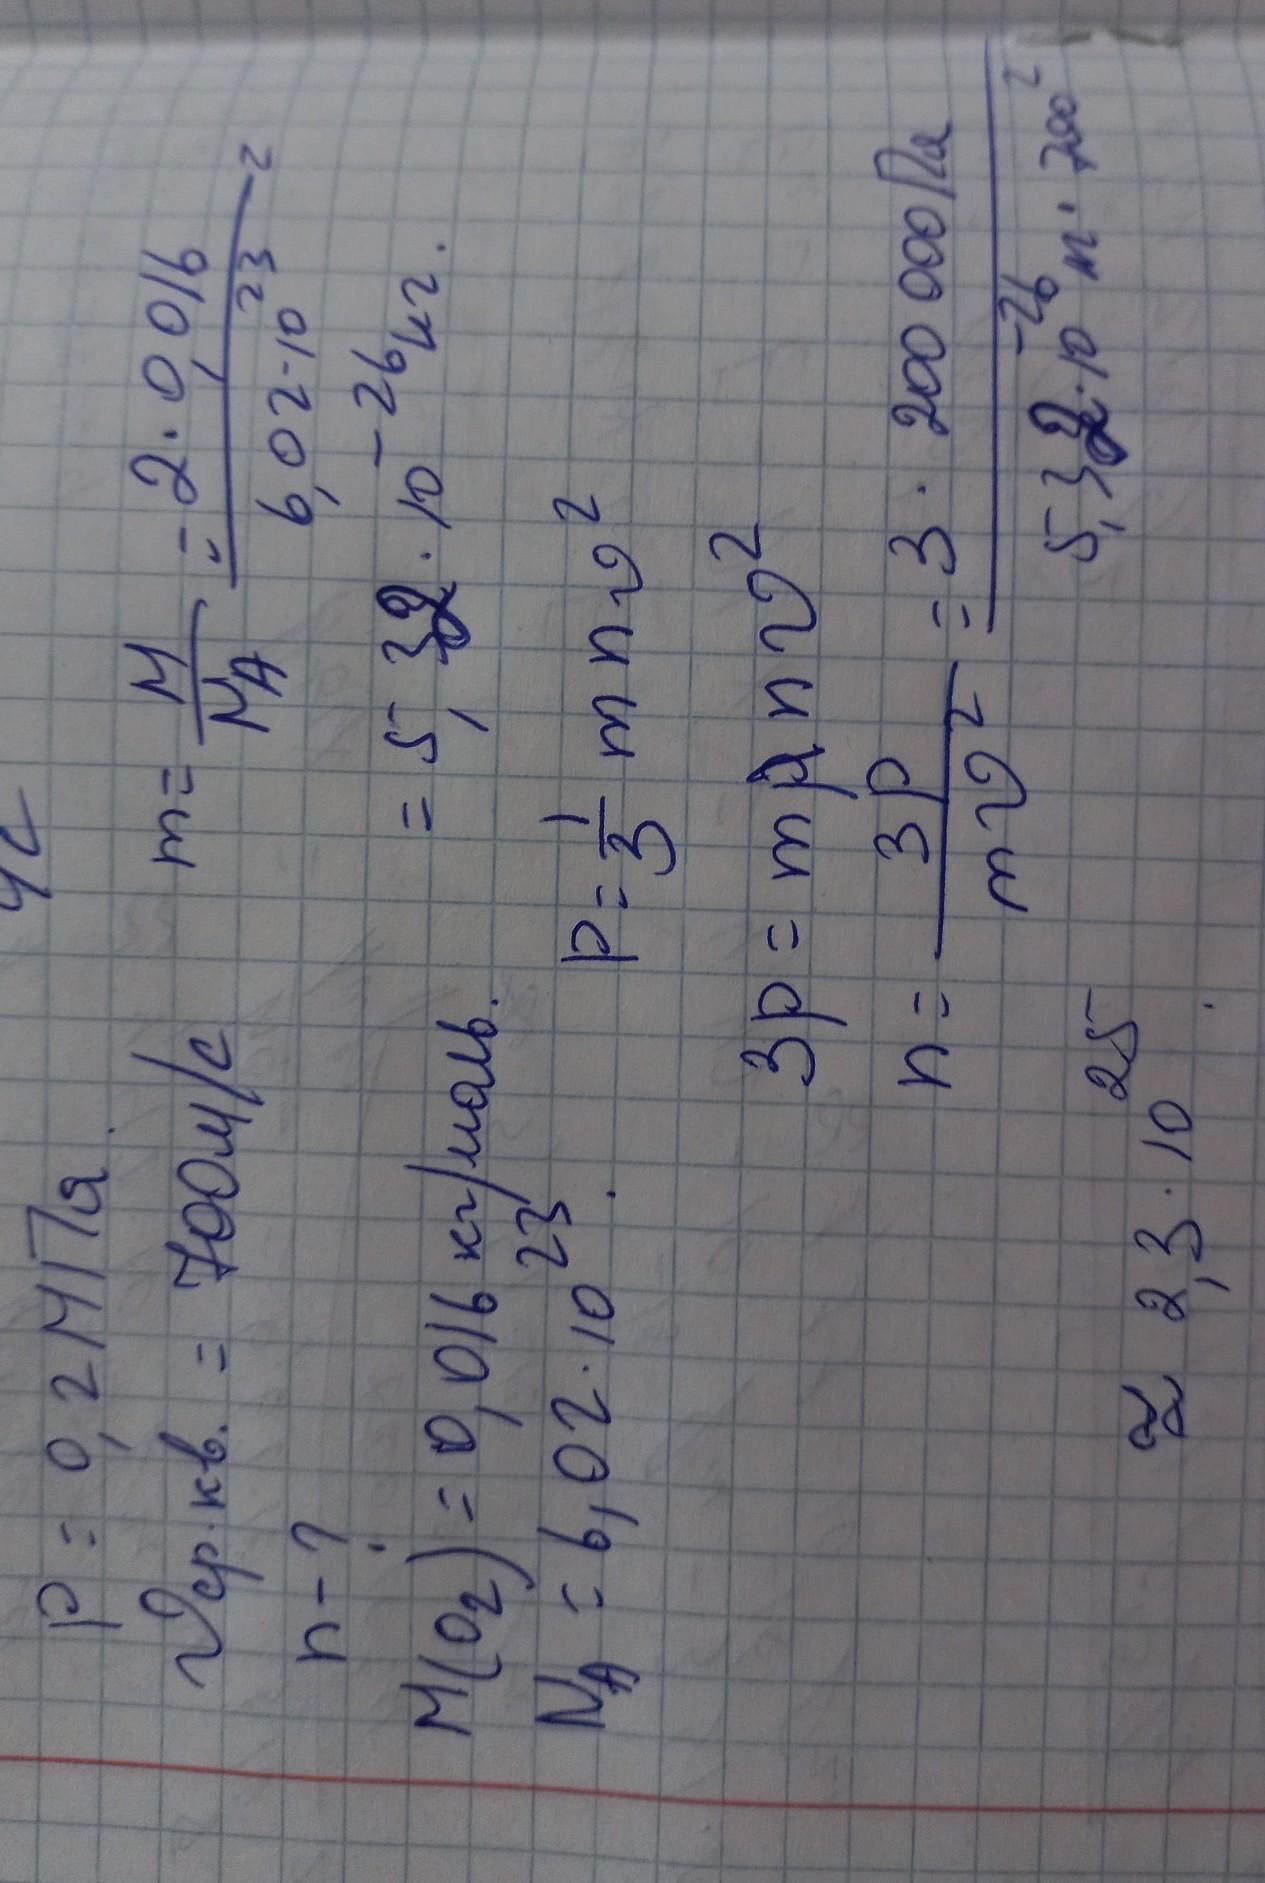 p = 0,2 МПа.
v ср.кв. = 700 м/с
n - ?
M(O₂) = 0,016 кг/моль.
N_A = 6,02 · 10²³.
m = M/N_A = 2 · 0,016 / 6,02 · 10²³
= 5,32 · 10⁻²⁶ кг.
p = 1/3 m n v²
3p = m n v²
n = 3p / m v² = 3 · 200 000 Па / 5,32 · 10⁻²⁶ · 700²
≈ 2,3 · 10²⁵.